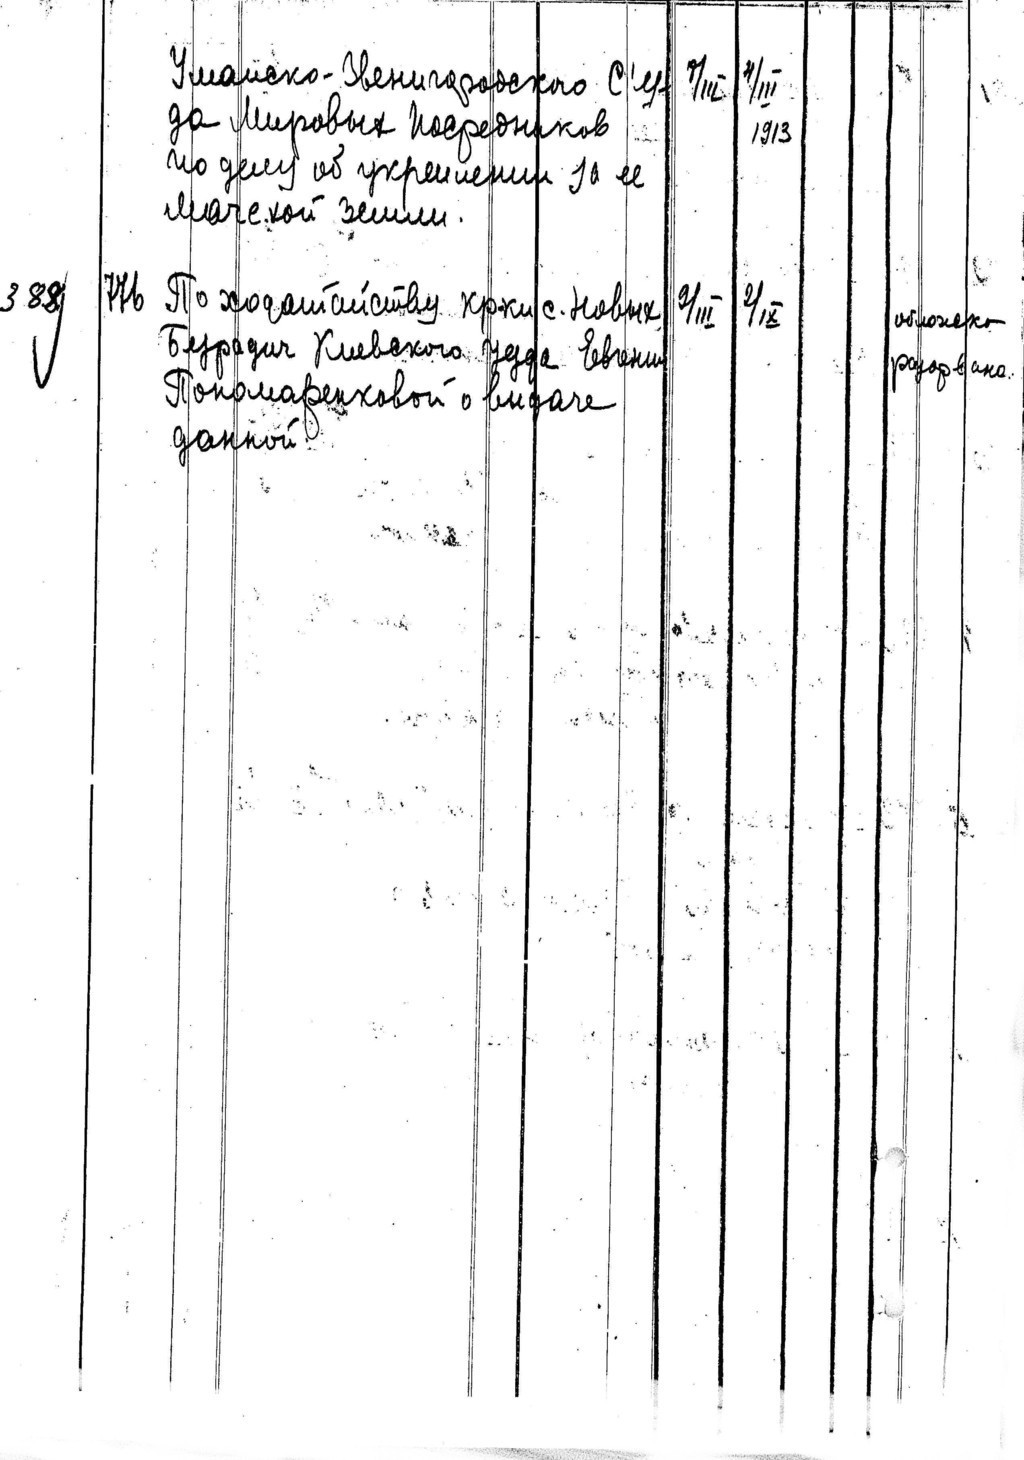 Уманско-Звенигородского С'ез- 7/III 4/III
да Мировых Посредников 1913
по делу об укреплении за ее
землй.
388 776 По ходатайству кр-ки с. Новых 9/III 2/IX обложка
Безрадич Киевского уезда Евгении разорвана.
Пономаренковой о выдаче
данной